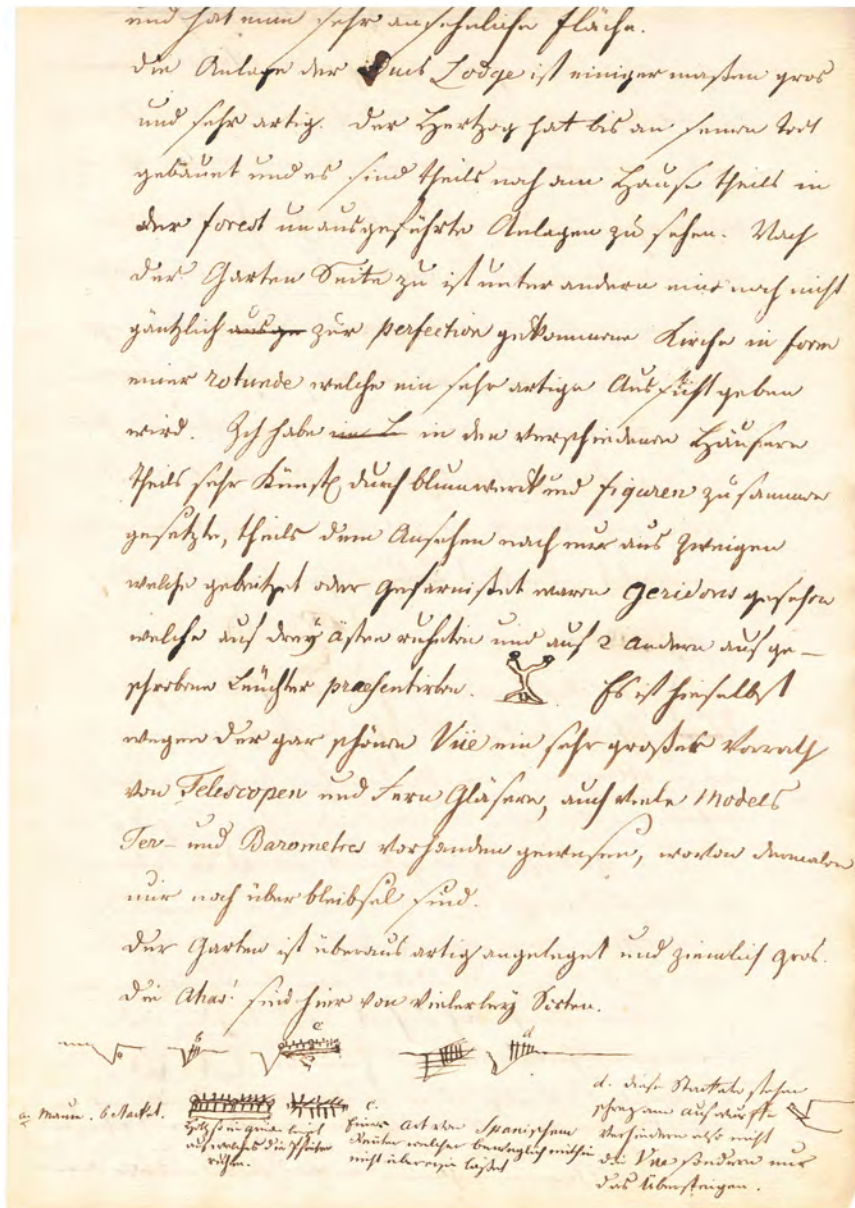 und hat eine sehr ansehnliche Fläche.
Die Anlage der Lodge ist einiger maßen gros
und sehr artig. Der Hertzog hat bis an seinen Todt
gebauet und es sind theils noch am Hause theils in
der forest unausgeführte Anlagen zu sehen. Nach
der Garten Seite zu ist unter andern eine noch nicht
gäntzlich ausge zur perfection gekommene Kirche in form
einer rotunde welche ein sehr artige Aussicht geben
wird. Ich habe in den verschiedenen Häusern
theils sehr künstl. durch blumwerck und figuren zusammen
gesetzte, theils dem Ansehen nach nur aus Zweigen
welche gebeitzet oder gefarnißet waren geridons gesehen
welche auf drey ästen ruheten und auf 2 andern aufge-
schrobene Leuchter præsentirten. Es ist hieselbst
wegen der gar schönen Vüe ein sehr großer Vorrath
von Telescopen und Fern Gläsern, auch viele Models
Ter- und Barometres vorhanden gewesen, wovon dermalen
nur noch überbleibsel sind.
Der Garten ist überaus artig angeleget und ziemlich gros.
Die Ahas! sind hier von vielerley Sorten.
b c d
a. Mauer. b Stacket.
Holtz so in grau liegt
auf welches die
ruhen.
c.
Einer Art von Spanischem
Reuter welcher beweglich mithin
nicht übersteigen laßet
d. diese Stackete stehen
schreg am
verhindern also nicht
die Vüe sondern nur
das Übersteigen.